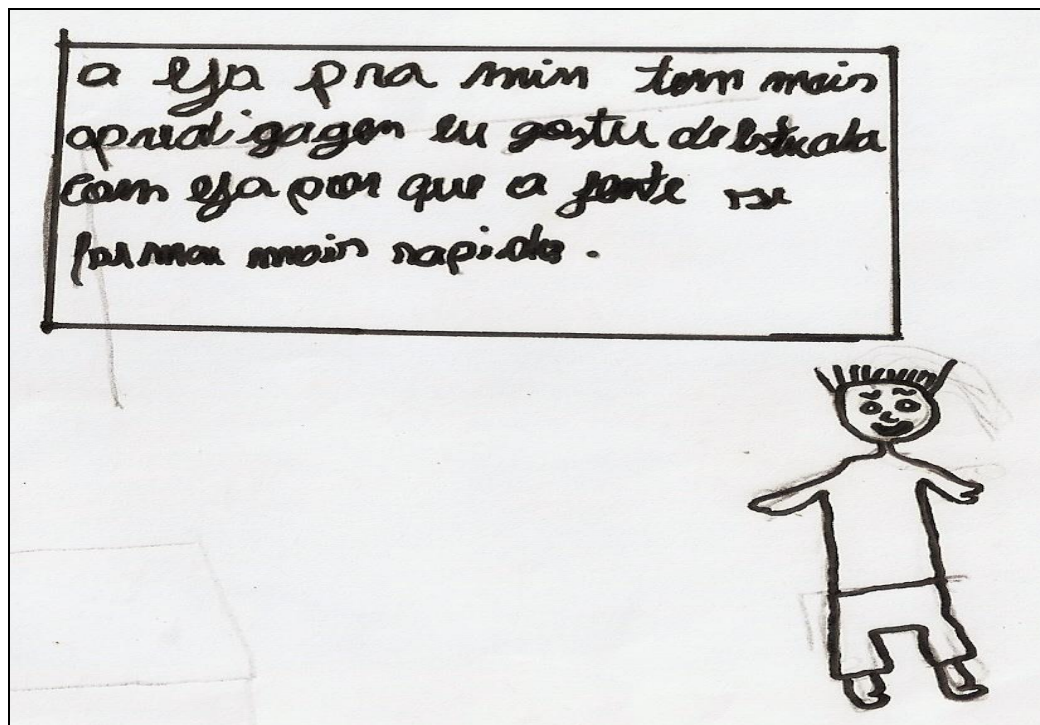 a eja pra min tem mais
apredigagen eu gostu de estuda
com eja por que a jente se
forma mais rapido.